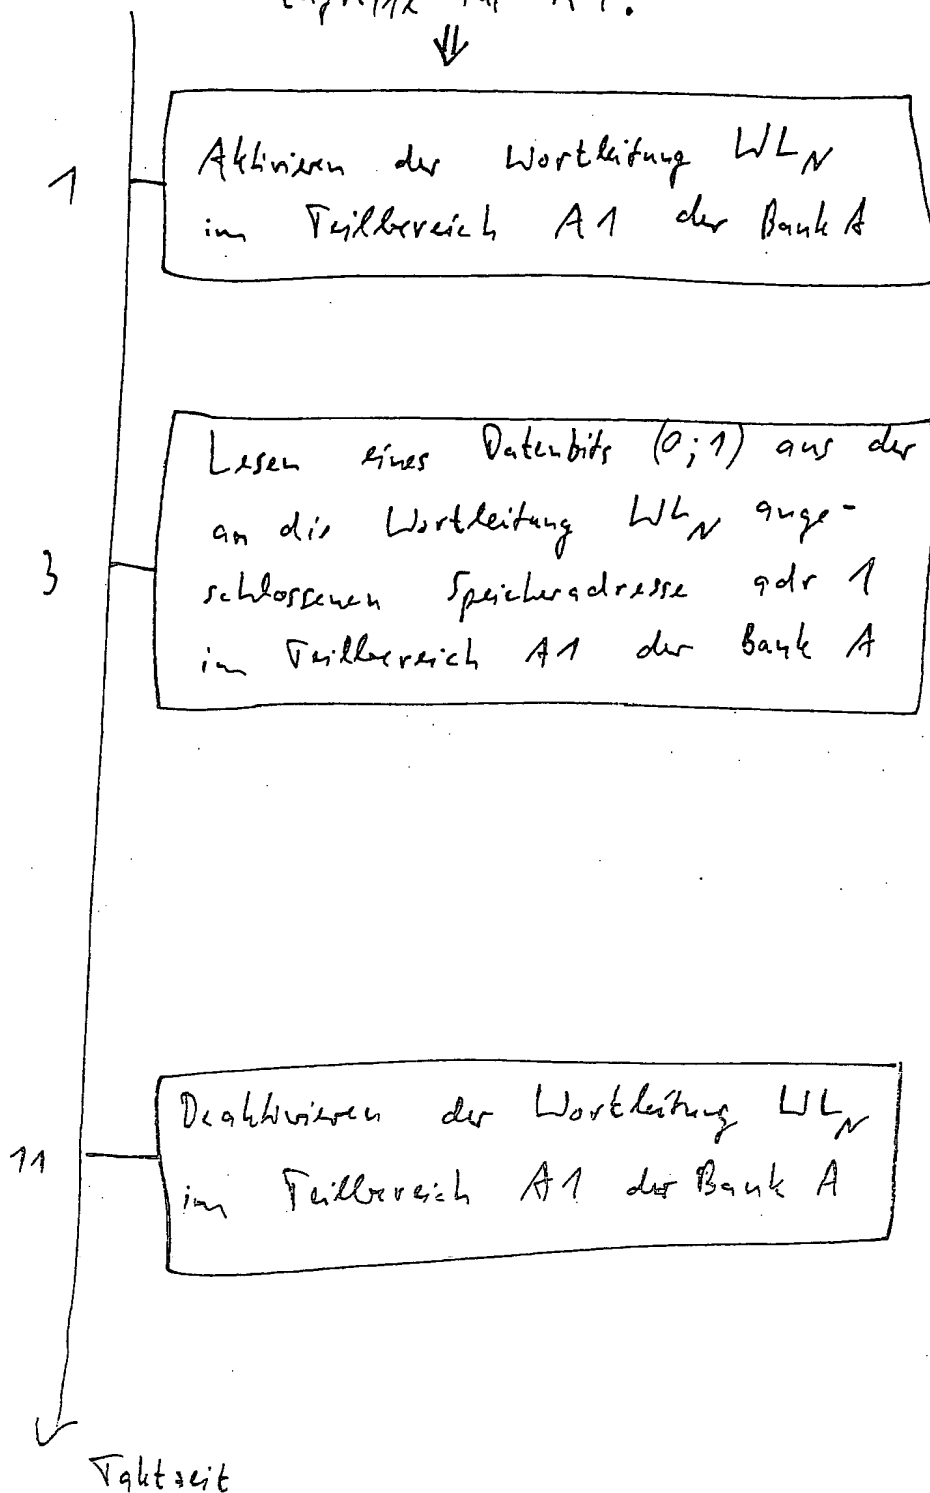 auf A1:
1
Aktivieren der Wortleitung WL_N
im Teilbereich A1 der Bank A
3
Lesen eines Datenbits (0;1) aus der
an die Wortleitung WL_N ange-
schlossenen Speicheradresse adr 1
im Teilbereich A1 der Bank A
11
Deaktivieren der Wortleitung WL_N
im Teilbereich A1 der Bank A
Taktzeit